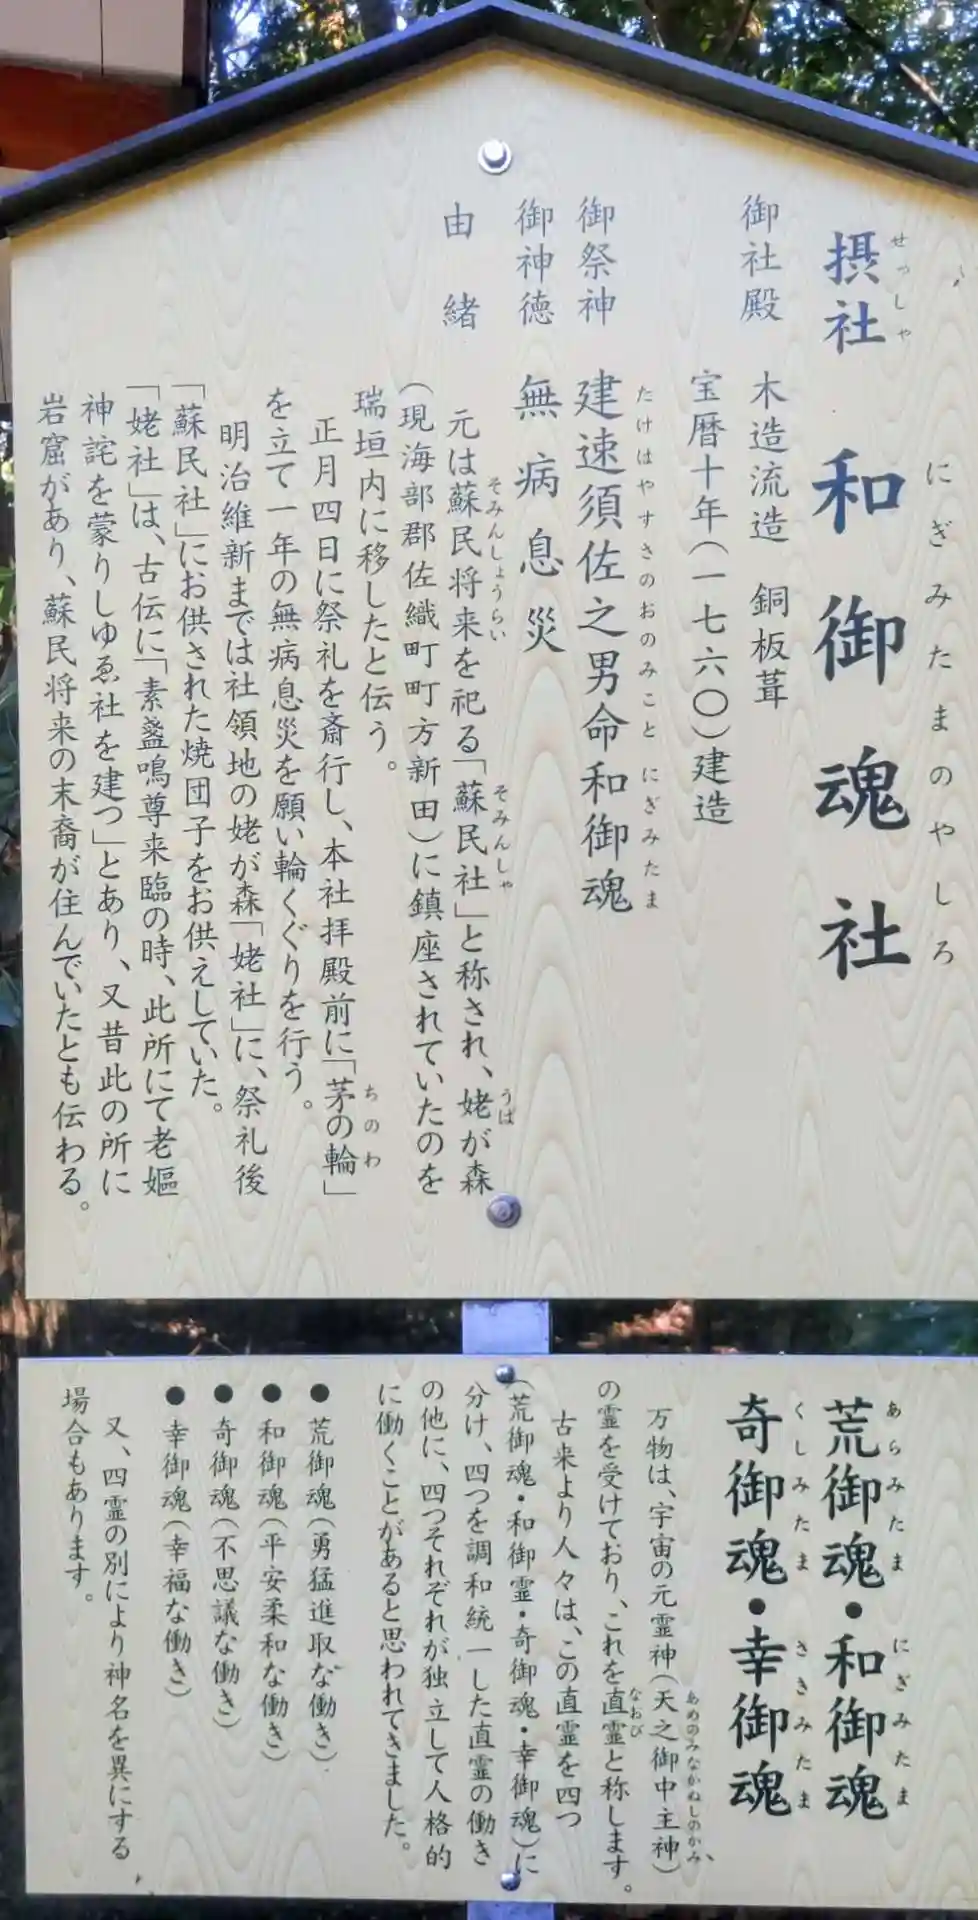 摂社 和御魂社
せっしゃ にぎみたまのやしろ
御社殿 木造流造 銅板葺
宝暦十年(一七六〇)建造
御祭神 建速須佐之男命和御魂
たけはやすさのおのみこと にぎみたま
御神徳 無病息災
由緒 元は蘇民将来を祀る「蘇民社」と称され、姥が森
そみんしょうらい そみんしゃ うば
(現海部郡佐織町町方新田)に鎮座されていたのを
瑞垣内に移したと伝う。
正月四日に祭礼を斎行し、本社拝殿前に「茅の輪」
ちのわ
を立て一年の無病息災を願い輪くぐりを行う。
明治維新までは社領地の姥が森「姥社」に、祭礼後
「蘇民社」にお供された焼団子をお供えしていた。
「姥社」は、古伝に「素盞鳴尊来臨の時、此所にて老嫗
神詫を蒙りしゆゑ社を建つ」とあり、又昔此の所に
岩窟があり、蘇民将来の末裔が住んでいたとも伝わる。
荒御魂●和御魂
あらみたま にぎみたま
奇御魂●幸御魂
くしみたま さきみたま
万物は、宇宙の元霊神(天之御中主神)
あめのみなかぬしのかみ、
の霊を受けており、これを直霊と称します。
なおび
古来より人々は、この直霊を四つ
(荒御魂・和御霊・奇御魂・幸御魂)に
分け、四つを調和統一した直霊の働き
の他に、四つそれぞれが独立して人格的
に働くことがあると思われてきました。
●荒御魂(勇猛進取な働き)
●和御魂(平安柔和な働き)
●奇御魂(不思議な働き)
●幸御魂(幸福な働き)
又、四霊の別により神名を異にする
場合もあります。